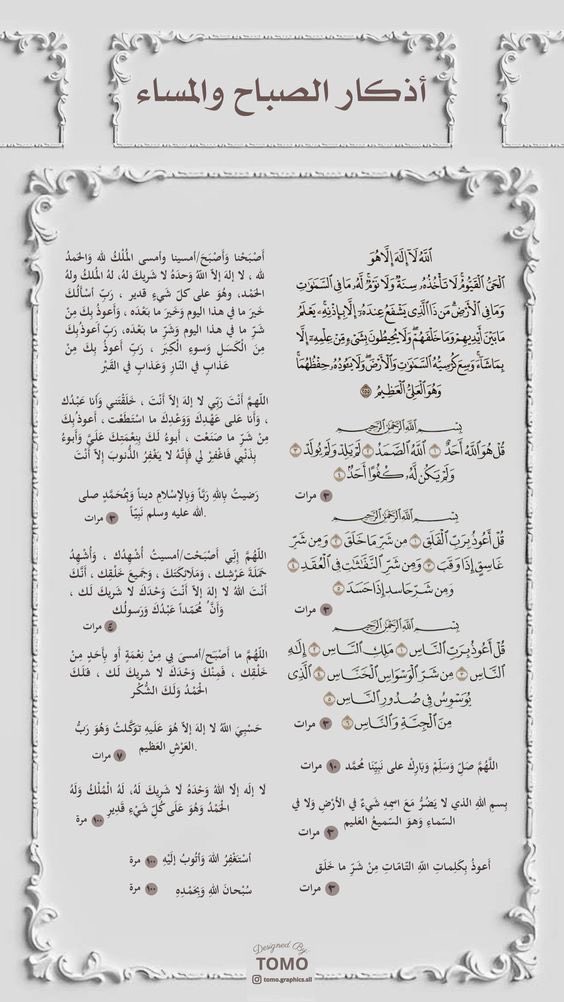 أذكار الصباح والمساء
ٱللَّهُ لَآ إِلَٰهَ إِلَّا هُوَ
ٱلۡحَيُّ ٱلۡقَيُّومُۚ لَا تَأۡخُذُهُۥ سِنَةٞ وَلَا نَوۡمٞۚ لَّهُۥ مَا فِي ٱلسَّمَٰوَٰتِ
وَمَا فِي ٱلۡأَرۡضِۗ مَن ذَا ٱلَّذِي يَشۡفَعُ عِندَهُۥٓ إِلَّا بِإِذۡنِهِۦۚ يَعۡلَمُ
مَا بَيۡنَ أَيۡدِيهِمۡ وَمَا خَلۡفَهُمۡۖ وَلَا يُحِيطُونَ بِشَيۡءٖ مِّنۡ عِلۡمِهِۦٓ إِلَّا
بِمَا شَآءَۚ وَسِعَ كُرۡسِيُّهُ ٱلسَّمَٰوَٰتِ وَٱلۡأَرۡضَۖ وَلَا يَـُٔودُهُۥ حِفۡظُهُمَاۚ
وَهُوَ ٱلۡعَلِيُّ ٱلۡعَظِيمُ ٢٥٥
بِسۡمِ ٱللَّهِ ٱلرَّحۡمَٰنِ ٱلرَّحِيمِ
قُلۡ هُوَ ٱللَّهُ أَحَدٌ ١ ٱللَّهُ ٱلصَّمَدُ ٢ لَمۡ يَلِدۡ وَلَمۡ يُولَدۡ ٣
وَلَمۡ يَكُن لَّهُۥ كُفُوًا أَحَدُۢ ٤
٣ مرات
بِسۡمِ ٱللَّهِ ٱلرَّحۡمَٰنِ ٱلرَّحِيمِ
قُلۡ أَعُوذُ بِرَبِّ ٱلۡفَلَقِ ١ مِن شَرِّ مَا خَلَقَ ٢ وَمِن شَرِّ
غَاسِقٍ إِذَا وَقَبَ ٣ وَمِن شَرِّ ٱلنَّفَّٰثَٰتِ فِي ٱلۡعُقَدِ ٤
وَمِن شَرِّ حَاسِدٍ إِذَا حَسَدَ ٥
٣ مرات
بِسۡمِ ٱللَّهِ ٱلرَّحۡمَٰنِ ٱلرَّحِيمِ
قُلۡ أَعُوذُ بِرَبِّ ٱلنَّاسِ ١ مَلِكِ ٱلنَّاسِ ٢ إِلَٰهِ
ٱلنَّاسِ ٣ مِن شَرِّ ٱلۡوَسۡوَاسِ ٱلۡخَنَّاسِ ٤ ٱلَّذِي
يُوَسۡوِسُ فِي صُدُورِ ٱلنَّاسِ ٥
مِنَ ٱلۡجِنَّةِ وَٱلنَّاسِ ٦ ٣ مرات
اللَّهُمَّ صَلِّ وَسَلِّمْ وَبَارِكْ على نَبِيِّنَا مُحمَّد ١٠ مرات
بِسمِ اللهِ الذي لا يَضُرُّ مَعَ اسمِهِ شَيءٌ في الأرْضِ وَلا في
السّماءِ وَهوَ السّميعُ العَليم
٣ مرات
أعوذُ بِكَلِماتِ اللّهِ التّامّاتِ مِنْ شَرِّ ما خَلَق
٣ مرات
أَصْبَحْنا وَأَصْبَحَ/أمسينا وأمسى المُلْكُ لله وَالحَمدُ
لله ، لا إلهَ إلاّ اللّهُ وَحدَهُ لا شَريكَ لهُ، لهُ المُلكُ ولهُ
الحَمْد، وهُوَ على كلّ شَيءٍ قدير ، رَبِّ أسْأَلُكَ
خَيرَ ما في هذا اليوم وَخَيرَ ما بَعْدَه ، وَأَعوذُ بِكَ مِنْ
شَرِّ ما في هذا اليوم وَشَرِّ ما بَعْدَه، رَبِّ أَعوذُبِكَ
مِنَ الْكَسَلِ وَسوءِ الْكِبَر ، رَبِّ أَعوذُ بِكَ مِنْ
عَذابٍ في النّارِ وَعَذابٍ في القَبْر
اللّهمَّ أَنْتَ رَبِّي لا إلهَ إلاّ أَنْتَ ، خَلَقْتَني وَأَنا عَبْدُك
، وَأَنا عَلى عَهْدِكَ وَوَعْدِكَ ما اسْتَطَعْت ، أعوذُ بِكَ
مِنْ شَرِّ ما صَنَعْت ، أَبوءُ لَكَ بِنِعْمَتِكَ عَلَيَّ وَأَبوءُ
بِذَنْبي فَاغْفِرْ لي فَإِنَّهُ لا يَغْفِرُ الذُّنوبَ إِلاّ أَنْتَ
رَضيتُ بِاللهِ رَبَّاً وَبِالإسْلامِ ديناً وَبِمُحَمَّدٍ صلى
الله عليه وسلم نَبِيّاً. ٣ مرات
اللّهُمَّ إِنِّي أَصْبَحْت/أمسيتُ أُشْهِدُك ، وَأُشْهِدُ
حَمَلَةَ عَرْشِك ، وَمَلَائِكَتَكَ ، وَجَميعَ خَلْقِك ، أَنَّكَ
أَنْتَ اللهُ لا إلهَ إلاّ أَنْتَ وَحْدَكَ لا شَريكَ لَك ،
وَأَنَّ مُحَمّداً عَبْدُكَ وَرَسولُك
٤ مرات
اللّهُمَّ ما أَصْبَحَ/أمسى بي مِنْ نِعْمَةٍ أَو بِأَحَدٍ مِنْ
خَلْقِك ، فَمِنْكَ وَحْدَكَ لا شريكَ لَك ، فَلَكَ
الْحَمْدُ وَلَكَ الشُّكْر
حَسْبِيَ اللّهُ لا إلهَ إلاّ هُوَ عَلَيهِ تَوَكَّلتُ وَهُوَ رَبُّ
العَرْشِ العَظيم.
٧ مرات
لَا إلَه إلّا اللهُ وَحْدَهُ لَا شَرِيكَ لَهُ، لَهُ الْمُلْكُ وَلَهُ
الْحَمْدُ وَهُوَ عَلَى كُلِّ شَيْءٍ قَدِير ١٠٠ مرة
أسْتَغْفِرُ اللهَ وَأَتُوبُ إلَيْهِ ١٠٠ مرة
سُبْحانَ اللهِ وَبِحَمْدِهِ ١٠٠ مرة
Designed By:
TOMO
tomo.graphics.sll